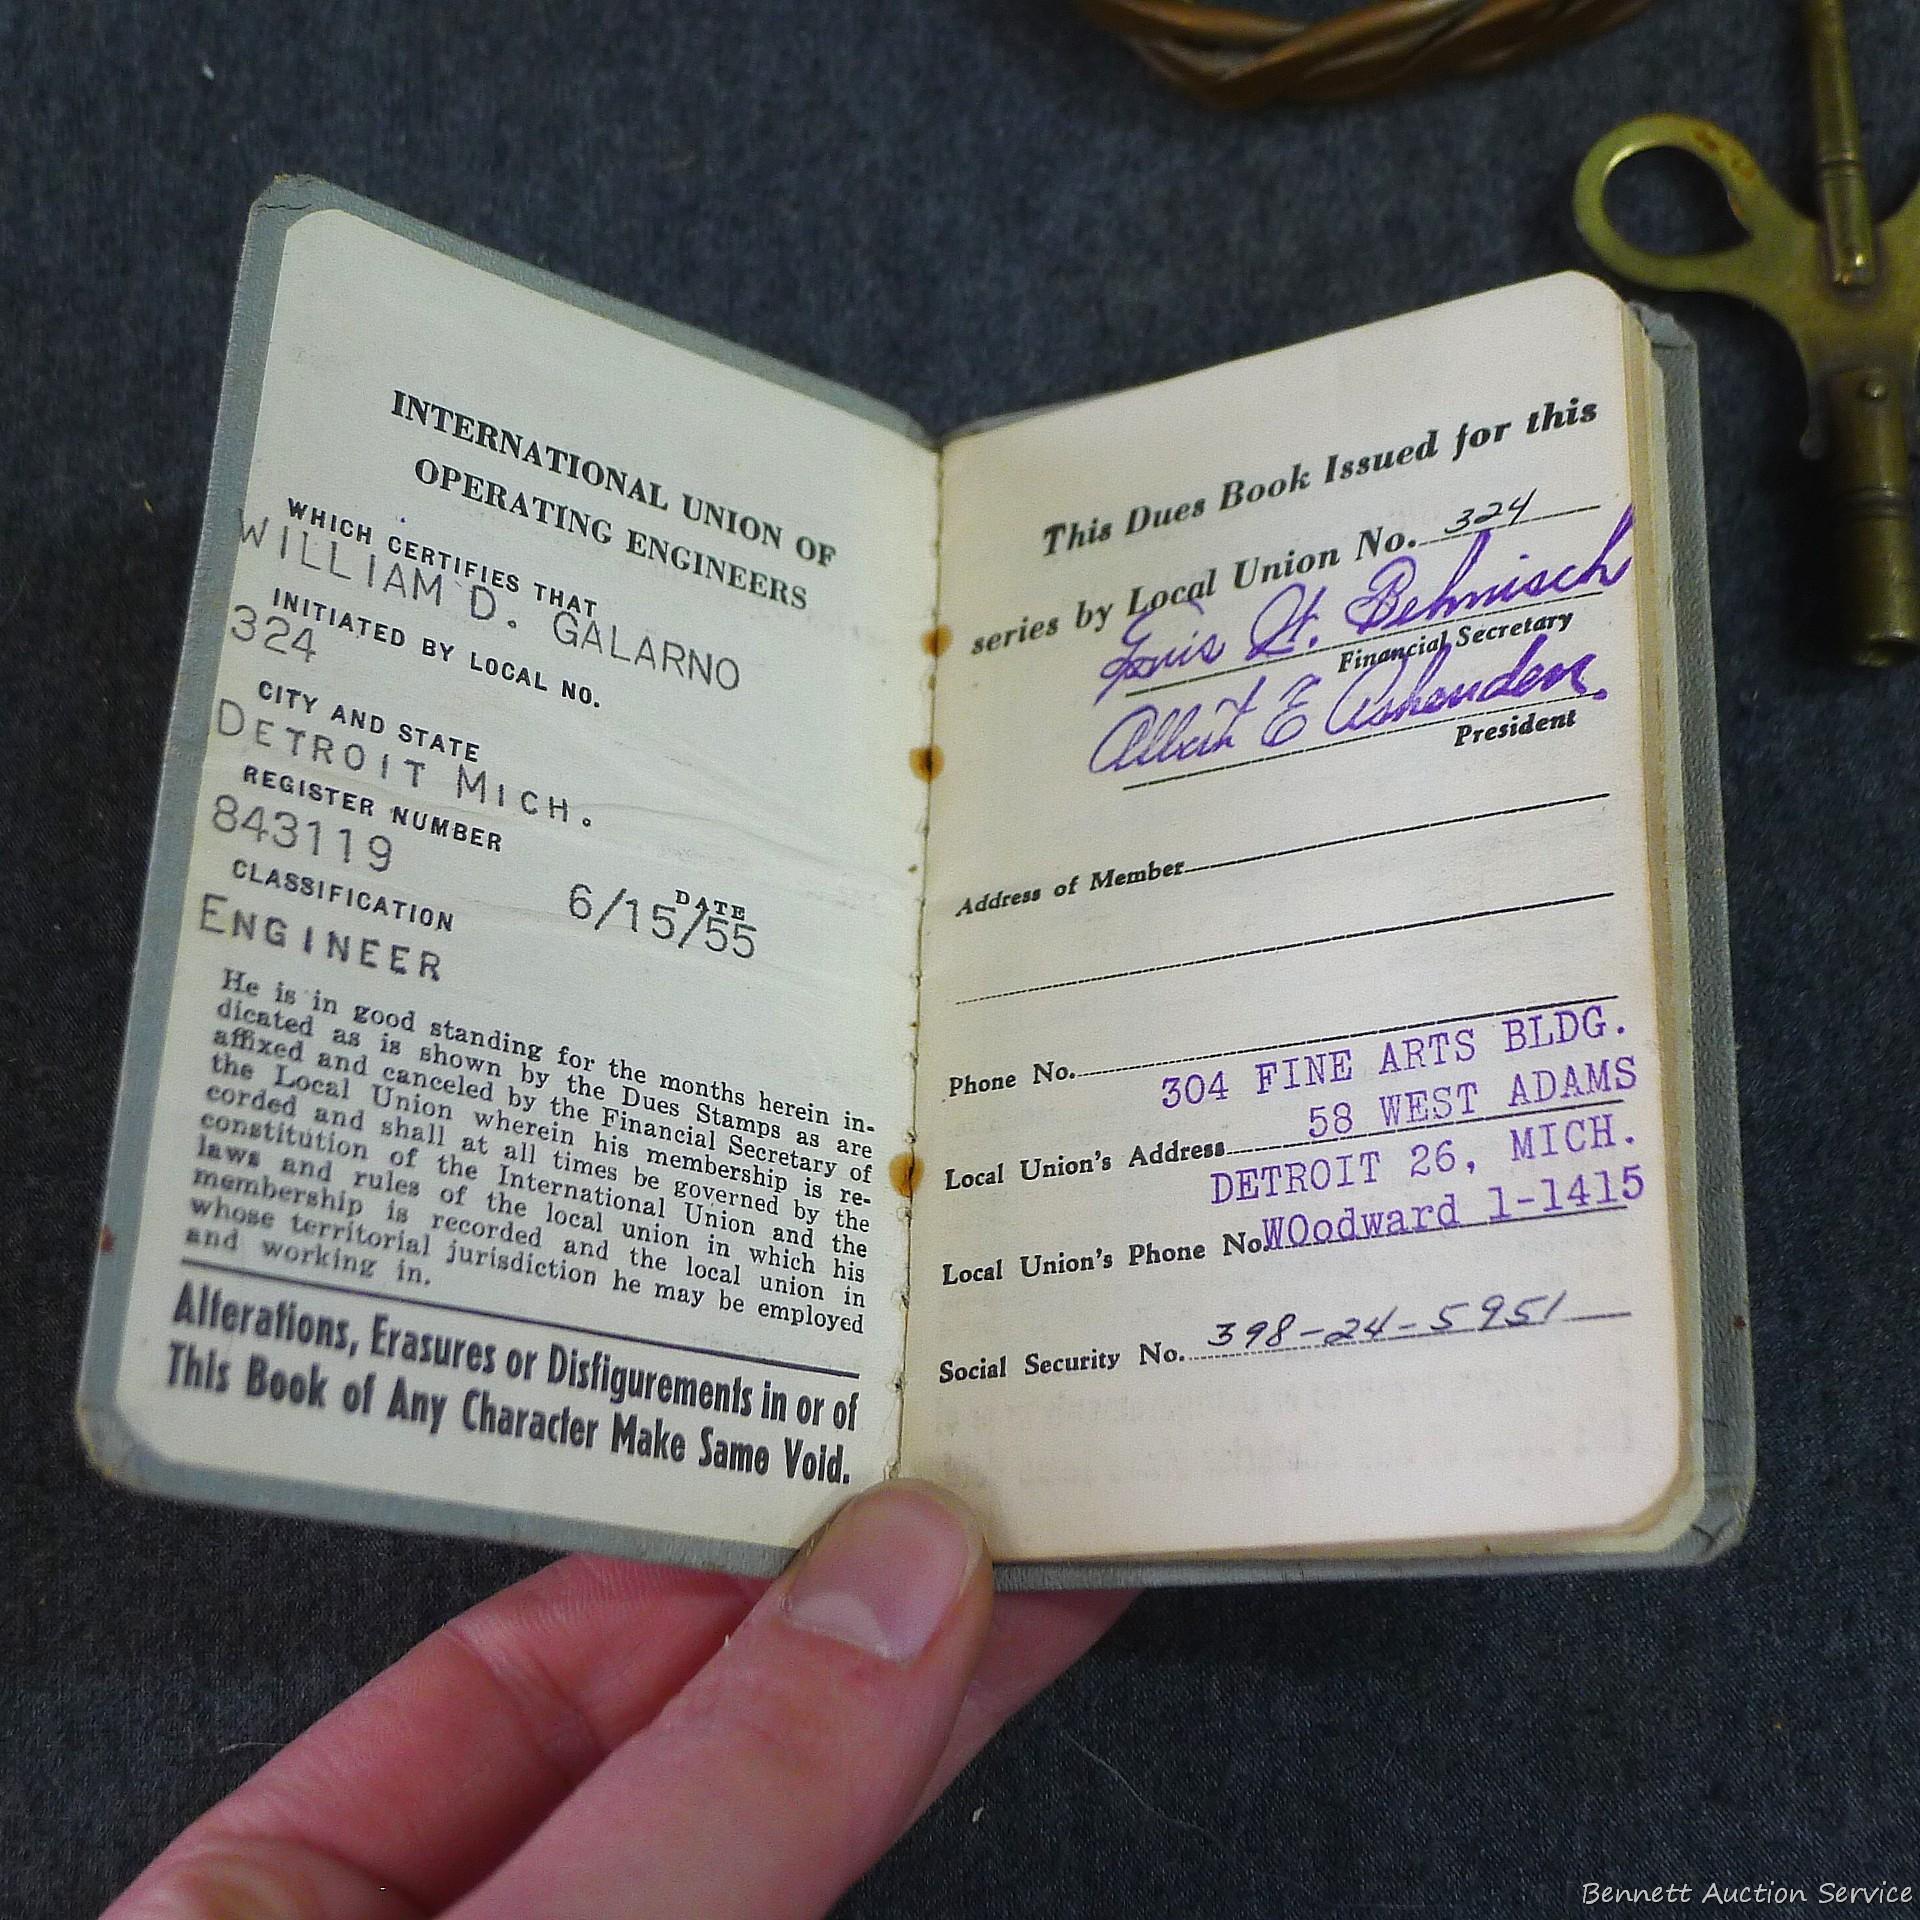 INTERNATIONAL UNION OF
OPERATING ENGINEERS
WHICH CERTIFIES THAT
WILLIAM D. GALARNO
INITIATED BY LOCAL NO.
324
CITY AND STATE
DETROIT MICH.
REGISTER NUMBER
843119
CLASSIFICATION
DATE
6/15/55
ENGINEER
He is in good standing for the months herein in-
dicated as is shown by the Dues Stamps as are
affixed and canceled by the Financial Secretary of
the Local Union wherein his membership is re-
corded and shall at all times be governed by the
constitution of the International Union and the
laws and rules of the local union in which his
membership is recorded and the local union in
whose territorial jurisdiction he may be employed
and working in.
Alterations, Erasures or Disfigurements in or of
This Book of Any Character Make Same Void.
This Dues Book Issued for this
series by Local Union No. 324
Louis H. Behnisch
Financial Secretary
Albert E Ashenden.
President
Address of Member
Phone No.
304 FINE ARTS BLDG.
58 WEST ADAMS
Local Union's Address
DETROIT 26, MICH.
Local Union's Phone No. WOodward 1-1415
Social Security No. 398-24-5951
Bennett Auction Service